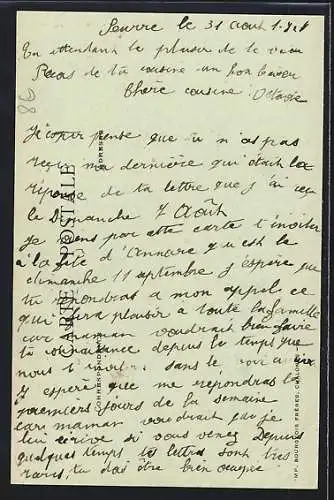 Seurre le 31 Août
En attendant le plaisir de te
de ta cousine un bon baiser
Chère cousine
pense que tu n'as pas
reçu ma dernière qui était la
réponse de ta lettre que j'ai reçu
le Dimanche 7 Août
Je viens par cette carte t'inviter
à la fête d' qu est le
dimanche 11 septembre j'espère que
tu répondras a mon appel ce
qui fera plaisir a toute la famille
car maman voudrait bien faire
ta connaissance depuis le temps que
nous sans le
J'espère que me répondras les
premiers jours de la semaine
car maman voudrait que je
lui écrive si vous venez Depuis
quelques temps tes lettres sont bien
rares, tu dois être bien
CARTE POSTALE
CORRESPONDANCE
ADRESSE
IMP. BOURGEOIS FRÈRES, CHALON